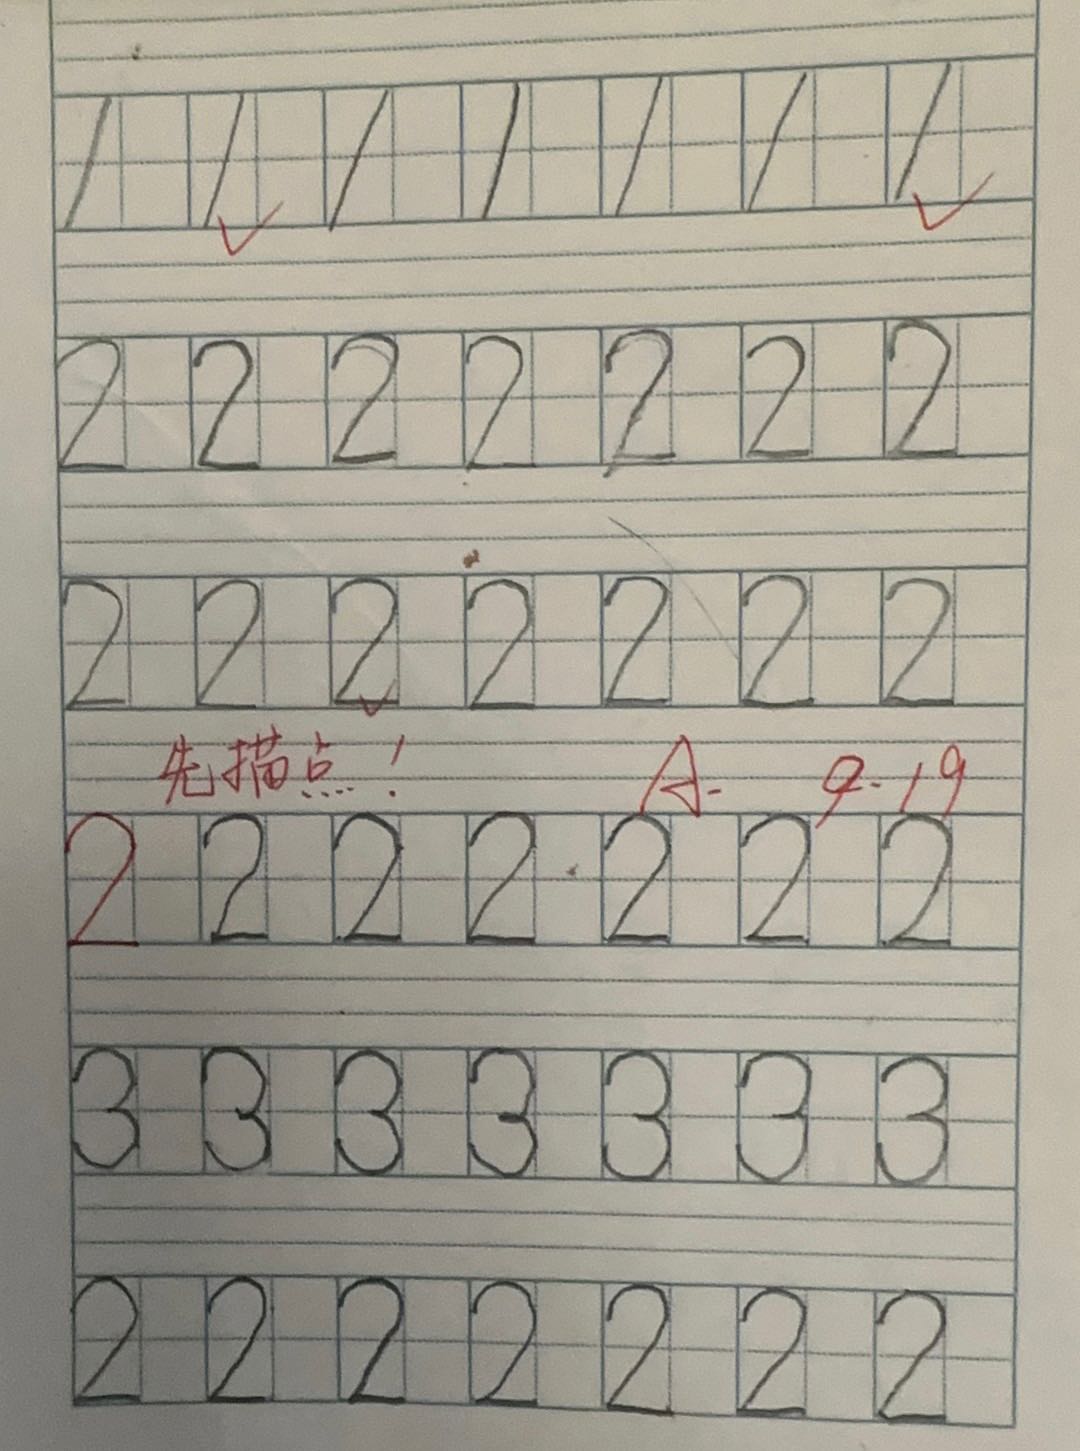 1 1 1 1 1 1 1
2 2 2 2 2 2 2
2 2 2 2 2 2 2
先描点! A- 9.19
2 2 2 2 2 2 2
3 3 3 3 3 3 3
2 2 2 2 2 2 2